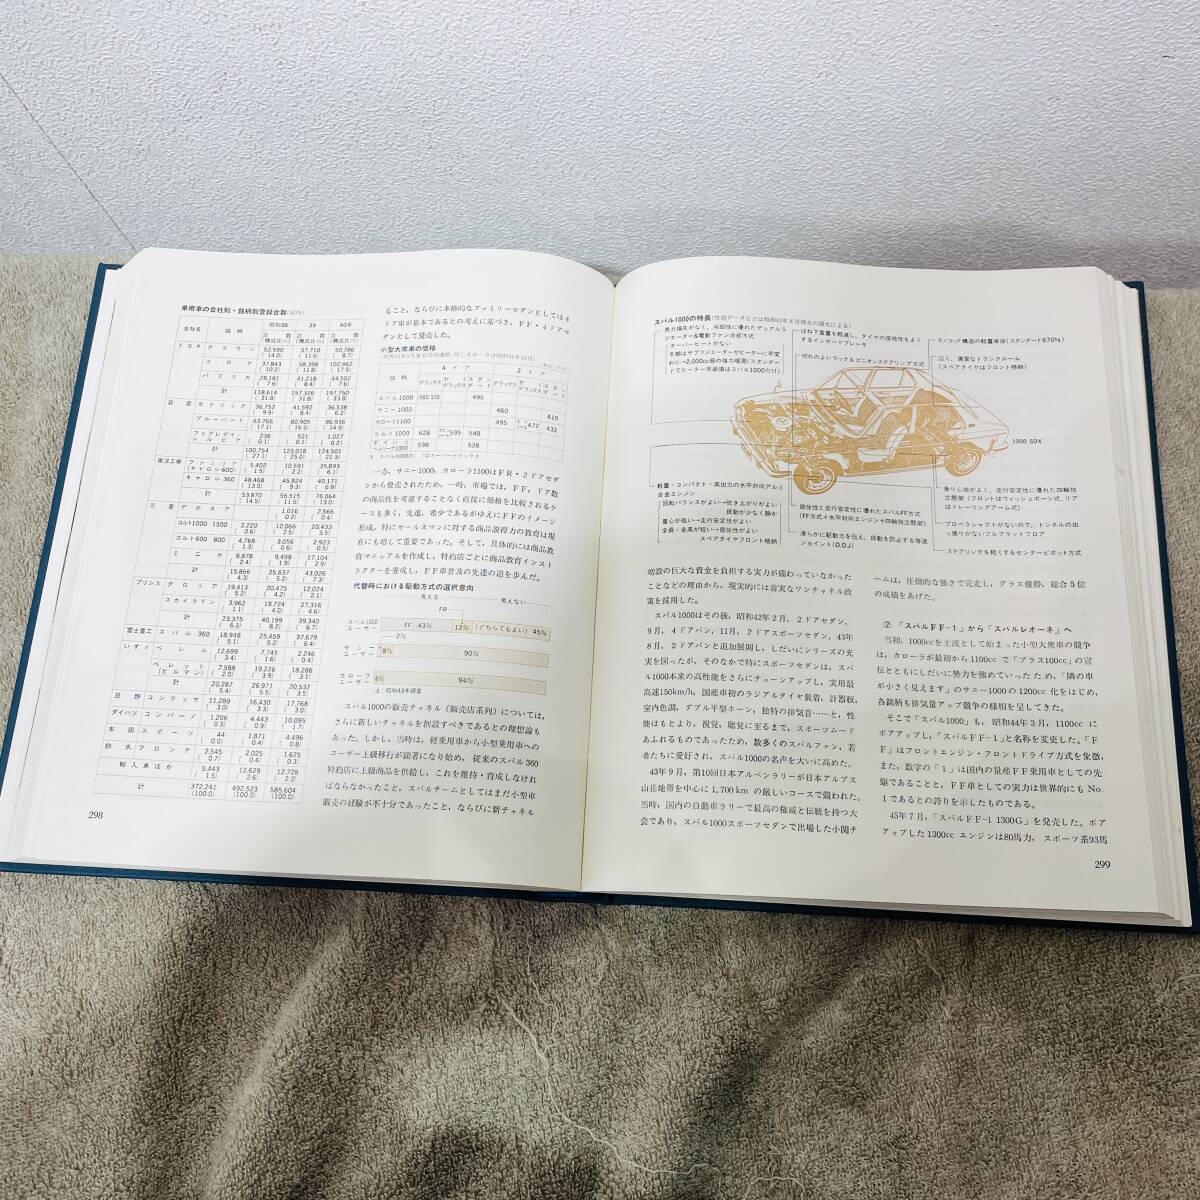 乗用車の会社別・銘柄別登録台数(国内)
会社名 銘柄 昭和38 39 40年
台数(構成比%) 台数(構成比%) 台数(構成比%)
トヨタ クラウン 52,590 (14.0) 57,710 (11.6) 50,786 (8.7)
コロナ 37,843 (10.2) 58,398 (11.8) 102,462 (17.5)
パブリカ 28,181 (7.6) 41,218 (8.4) 44,502 (7.6)
計 118,614 (31.8) 157,326 (31.8) 197,750 (33.8)
日産 セドリック 36,752 (9.9) 41,592 (8.4) 36,538 (6.2)
ブルーバード 63,766 (17.1) 80,905 (16.5) 86,936 (14.9)
フェアレディ・シルビア 236 (0.1) 521 (0.1) 1,027 (0.2)
計 100,754 (27.1) 123,018 (25.0) 124,501 (21.3)
東洋工業 ファミリア(キャロル600) 5,402 (1.5) 10,591 (2.2) 35,893 (6.1)
キャロル360 48,468 (13.0) 45,924 (9.3) 40,171 (6.9)
計 53,870 (14.5) 56,515 (11.5) 76,064 (13.0)
三菱 デボネア 1,016 (0.2) 2,566 (0.4)
コルト1000 1500 2,220 (0.6) 12,066 (2.5) 20,435 (3.5)
コルト600 800 4,768 (1.3) 3,056 (0.6) 2,923 (0.5)
ミニカ 8,878 (2.4) 9,499 (1.9) 17,104 (2.9)
計 15,866 (4.3) 25,637 (5.2) 43,026 (7.3)
プリンス グロリア 19,413 (5.2) 20,475 (4.2) 12,024 (2.1)
スカイライン 3,962 (1.1) 19,724 (4.0) 27,316 (4.6)
計 23,375 (6.3) 40,199 (8.2) 39,340 (6.7)
富士重工 スバル360 18,948 (5.1) 25,459 (5.2) 37,679 (6.4)
いすゞ ベレル 12,699 (3.4) 7,745 (1.6) 2,246 (0.4)
ベレット(ヒルマン) 7,588 (2.0) 19,226 (3.9) 18,286 (3.1)
計 20,287 (5.4) 26,971 (5.5) 20,532 (3.5)
日野 コンテッサ 11,289 (3.0) 16,430 (3.3) 17,768 (3.0)
ダイハツ コンパーノ 1,206 (0.3) 4,443 (0.9) 10,095 (1.7)
本田 スポーツ 44 (0.0) 1,871 (0.4) 4,496 (0.8)
鈴木 フロンテ 2,545 (0.7) 2,025 (0.4) 1,625 (0.3)
輸入車ほか 5,443 (1.5) 12,629 (2.6) 12,728 (2.2)
計 372,241 (100.0) 492,523 (100.0) 585,604 (100.0)
298
ること，ならびに本格的なファミリーセダンとしては4
ドア車が基本であるとの考えに基づき，FF・4ドアセ
ダンとして発売した。
小型大衆車の価格
銘柄 4ドア 2ドア
デラックス セミデラックス スタンダード デラックス セミデラックス スタンダード
スバル1000 495
サニー1000 460 410
カローラ1100 495 472 432
コルト1000 628 595 548
ダイハツベルリーナ1000 598 528
一方，サニー1000，カローラ1100はFR・2ドアセダ
ンから発売されたため，一時，市場では，FF，ドア数
の商品性を考慮することなく直接に価格を比較されるケ
ースも多く，先進，希少であるがゆえにFFのイメージ
形成，特にセールスマンに対する商品説得力の教育は現
在にも増して重要であった。そして，具体的には商品教
育マニュアルを作成し，特約店ごとに商品教育インスト
ラクターを養成し，FF車普及の先達の道を歩んだ。
代替時における駆動方式の選択意向
考える 考えない
FR
スバル1000ユーザー FF 43% 12% (どちらでもよい) 45%
2%
サニーユーザー 8% 90%
カローラユーザー 6% 94%
注：昭和43年調査
スバル1000の販売チャネル（販売店系列）については，
さらに新しいチャネルを創設すべきであるとの理想論も
あった。しかし，当時は，軽乗用車から小型乗用車への
ユーザー上級移行が顕著になり始め，従来のスバル360
特約店に上級商品を供給し，これを維持・育成しなけれ
ばならなかったこと，スバルチームとしてはまだ小型車
販売の経験が不十分であったこと，ならびに新チャネル
スバル1000の特長(性能データなどは昭和41年8月現在の諸元による)
馬力損失がなく，冷却性に優れたデュアルラ
ジエーター&電動ファン冷却方式
オーバーヒートがない
冬期はサブラジエーターがヒーターに早変
わり→2,000cc級の強力暖房(スタンダー
ドでヒーター常装備はスバル1000だけ)
ばね下重量を軽減し，タイヤの接地性をよく
するインボードブレーキ
切れのよいラック&ピニオンステアリング方式
モノコック構造の軽量車体(スタンダード670㎏)
広く，清潔なトランクルーム
(スペアタイヤはフロント格納)
1000 SDX
軽量・コンパクト・高出力の水平対向アルミ
合金エンジン
回転バランスがよい→吹き上がりがよい
振動が少なく静か
重心が低い→走行安定性がよい
全長・全高が短い→居住性がよい
スペアタイヤフロント格納
居住性と走行安定性に優れたスバルFF方式
(FF方式+水平対向エンジン+四輪独立懸架)
滑らかに駆動力を伝え，振動を防止する等速
ジョイント(D.O.J)
乗り心地がよく，走行安定性に優れた四輪独
立懸架(フロントはウィッシュボーン式，リア
はトレーリングアーム式)
プロペラシャフトがないので，トンネルの出
っ張りがないフルフラットフロア
ステアリングを軽くするセンターピボット方式
増設の巨大な資金を負担する実力が備わっていなかった
ことなどの理由から，現実的には着実なワンチャネル政
策を採用した。
スバル1000はその後，昭和42年2月，2ドアセダン，
9月，4ドアバン，11月，2ドアスポーツセダン，43年
8月，2ドアバンと追加展開し，しだいにシリーズの充
実を図ったが，そのなかで特にスポーツセダンは，スバ
ル1000本来の高性能をさらにチューンアップし，実用最
高速150km/h，国産車初のラジアルタイヤ装着，計器板，
室内色調，ダブル平型ホーン，独特の排気音……と，性
能はもとより，視覚，聴覚に至るまで，スポーツムード
あふれるものであったため，数多くのスバルファン，若
者たちに愛好され，スバル1000の名声を大いに高めた。
43年9月，第10回日本アルペンラリーが日本アルプス
山岳地帯を中心に1,700kmの厳しいコースで競われた。
当時，国内の自動車ラリーで最高の権威と伝統を持つ大
会であり，スバル1000スポーツセダンで出場した小関チ
ームは，圧倒的な強さで完走し，クラス優勝，総合5位
の成績をあげた。
② 「スバルFF-1」から「スバルレオーネ」へ
当初，1000ccを主流として始まった小型大衆車の競争
は，カローラが最初から1100ccで「プラス100cc」の宣
伝とともにしだいに勢力を強めていったため，「隣の車
が小さく見えます」のサニー1000の1200cc化をはじめ，
各銘柄も排気量アップ競争の様相を呈してきた。
そこで「スバル1000」も，昭和44年3月，1100ccに
ボアアップし，「スバルFF-1」と名称を変更した。「F
F」はフロントエンジン・フロントドライブ方式を象徴，
また，数字の「1」は国内の量産FF乗用車としての先
駆であることと，FF車としての実力は世界的にもNo.
1であるとの誇りを示したものである。
45年7月，「スバルFF-1 1300G」を発売した。ボア
アップした1300ccエンジンは80馬力，スポーツ系93馬
299